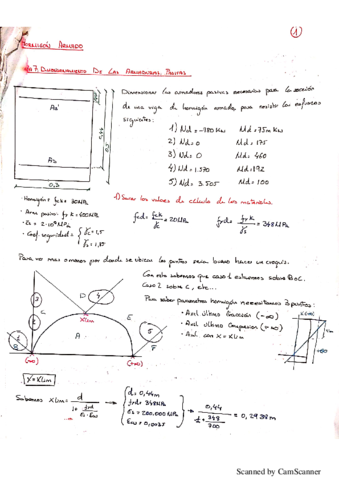 ①
HORMIGÓN ARMADO
7. DIMENSIONAMIENTO DE LAS ARMADURAS PASIVAS
Dimensionar las armaduras pasivas necesarias para la sección
de una viga de hormigón armado para resistir los esfuerzos
siguientes:
1) Nd = -780 KN Md = 75 m KN
2) Nd = 0 Md = 175
3) Nd = 0 Md = 460
4) Nd = 1.570 Md = 192
5) Nd = 3.505 Md = 100
As'
As
0,44
0,3
· Hormigón: fck = 30 MPa
· Acero pasivo: fyk = 400 MPa
· Es = 2·10⁵ MPa
· Coef. seguridad = { γc = 1,5
γs = 1,15
1) Sacar los valores de cálculo de los materiales.
fcd = fck/γc = 20 MPa fyd = fyk/γs = 348 MPa
Para ver más o menos por donde se ubican los puntos sería bueno hacer un croquis.
Con esto sabemos que caso 1 estaremos sobre B o C.
Caso 2 sobre C, etc...
Para sacar parámetros hormigón necesitamos 3 puntos:
· Axil último tracción (-∞)
· Axil último compresión (+∞)
· Axil con x = xlim
D
C
E
xlim
A
B
F
(-∞)
(+∞)
x = xlim
Sabemos xlim = d / 1 + fyd/Es·εcu
d = 0,44m
fyd = 348 MPa
Es = 200.000 MPa
εcu = 0,0035
= 0,2938 m
Scanned by CamScanner